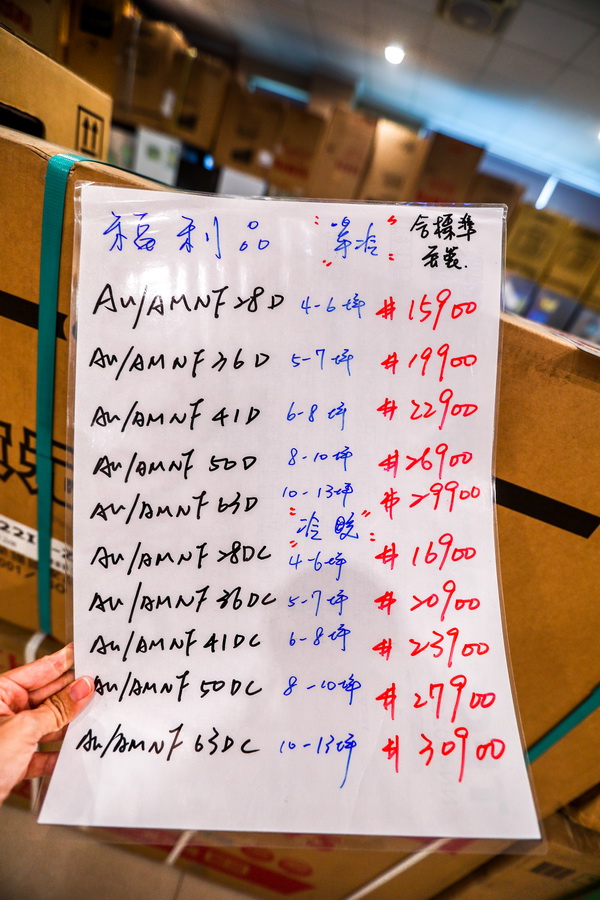 福利品 "單冷" 含標準
安裝.
Au/AMNF28D 4-6坪 #15900
Au/AMNF36D 5-7坪 #19900
Au/AMNF 41D 6-8坪 #22900
Au/AMNF 50D 8-10坪 #26900
Au/AMNF 63D 10-13坪 #29900
"冷暖"
Au/AMNF 28DC 4-6坪 #16900
Au/AMNF 36DC 5-7坪 #20900
Au/AMNF 41DC 6-8坪 #23900
Au/AMNF 50DC 8-10坪 #27900
Au/AMNF 63DC 10-13坪 #30900